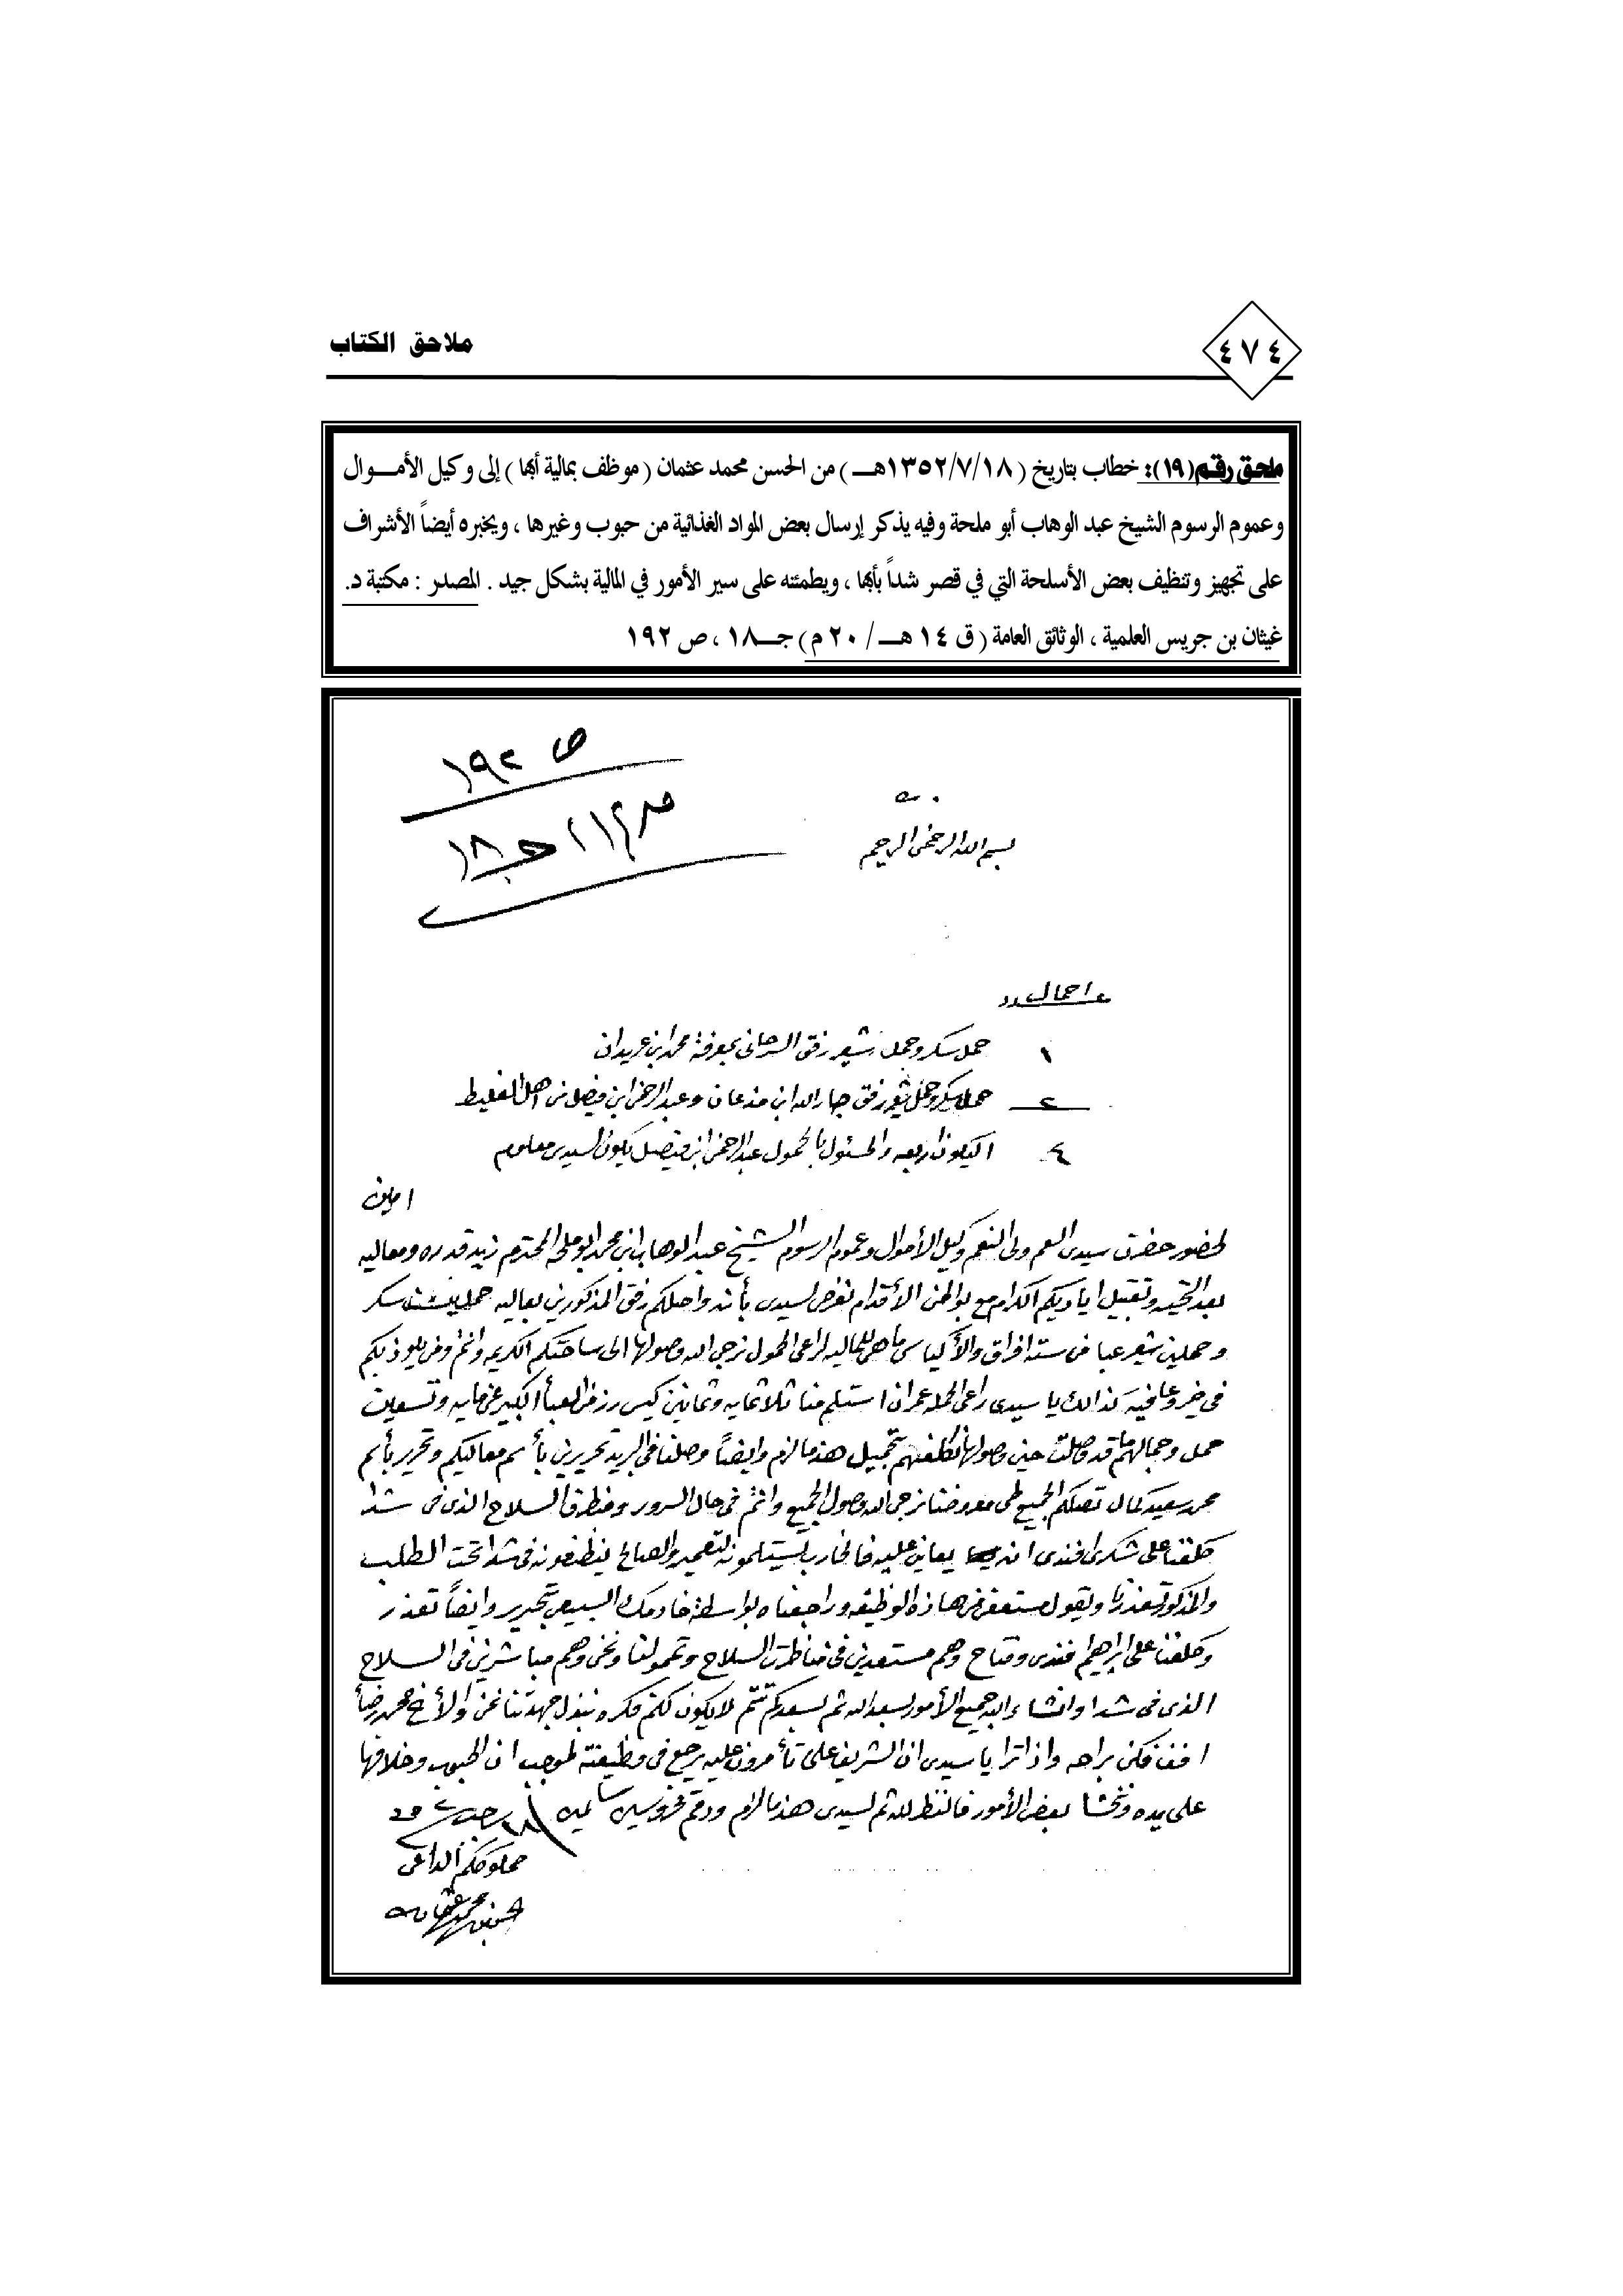 ملاحق الكتاب
٤٧٤
ملحق رقم (١٩): خطاب بتاريخ (١٣٥٢/٧/١٨هـ) من الحسن محمد عثمان (موظف بمالية أبها) إلى وكيل الأمـوال
وعموم الرسوم الشيخ عبد الوهاب أبو ملحة وفيه يذكر إرسال بعض المواد الغذائية من حبوب وغيرها ، ويخبره أيضاً الأشراف
على تجهيز وتنظيف بعض الأسلحة التي في قصر شداً بأبها ، ويطمئنه على سير الأمور في المالية بشكل جيد . المصدر : مكتبة د.
غيثان بن جريس العلمية ، الوثائق العامة (ق ١٤ هـ / ٢٠ م) جـ١٨ ، ص ١٩٢
ص ١٩٢
جـ ١٨
بسم الله الرحمن الرحيم
احمال
١ حمل سكر وحمل شعير رفق السرحاني بمعرفة محمد ابن عريدان
٢ حمل سكر وحمل شعير رفق جار الله ابن مذعان وعبد الرحمن ابن فيصل من اهل
٤ اليكون اربعه والمسئول بالحمول عبد الرحمن ابن فيصل يكون لسيدي معلوم
امين
لحضور حضرت سيدي العم ولي النعم وكيل الأموال وعموم الرسوم الشيخ عبد الوهاب ابن محمد ابو ملحه المحترم زيد قدره ومعاليه
بعد التحيه وتقبيل اياديكم الكرام مع بواطن الأقدام نعرض لسيدي بأنه واصلكم رفق المذكورين بعاليه حملين سكر
وحملين شعير عبا من سته افراق والأكياس ما هي للماليه لراعي الحمول نرجى الله وصولها الى ساحتكم الكريمه وانتم ومن يلوذ بكم
في خير وعافيه كذالك يا سيدي راعي الحمله عمران استلم منا ثلاثمايه وثمانين كيس رز من العبأ الكبير عن مايه وتسعين
حمل وجمالهم ما قد وصلت حين وصولها نكلفهم بتحميل هذا ما لزم وايضاً وصلنا في البريد تحريرين بأسم معاليكم وتحرير بأسم
محمد سعيد كمال تصلكم الجميع طي معروضنا نرجى الله وصول الجميع وانتم في حال السرور ومنطرف السلاح الذي في شدا
كلفنا على شكري افندي انه يعاين عليه فالخارب يستلمونه لتعمير والصالح ينظفونه في شدا تحت الطلب
والمذكور تعذر وتقول مستعفي من هاذه الوظيفه وراجعناه بواسطة خادمك السبيعي بتحرير وايضاً تعذر
وكلفنا على ابراهيم افندي ومتاح وهم مستعدين في مناظرت السلاح ونحن وهم مباشرين في السلاح
الذي في شدا وانشاء الله جميع الأمور بسعد الله ثم بسعدكم تتم لا يكون لكم فكره نبذل جهدتنا نحن والأخ محمد رضأ
افندي فكن براحه واذا ترا يا سيدي ان الشريف علي تأمرون عليه يرجع في وظيفته لموجب ان الحبوب وخلافها
على يده ونخشا بعض الأمور فالنظر لله ثم لسيدي هذا ما لزم ودمتم محروسين سالمين ١٨ رجب ٥٢
مملوككم الداعي
الحسن محمد عثمان